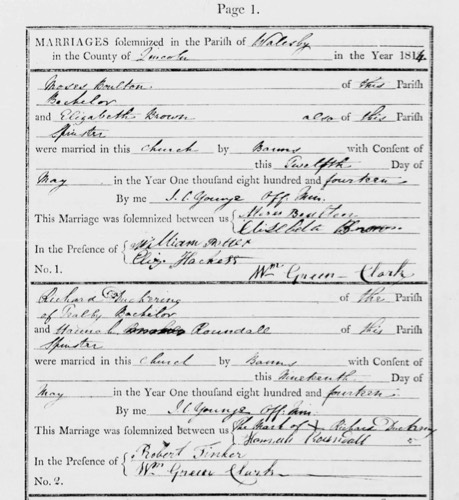 Page 1.
MARRIAGES solemnized in the Parish of Walesby
in the County of Lincoln in the Year 1814
Moses Boulton of this Parish
Bachelor
and Elizabeth Brown also of this Parish
Spinster
were married in this church by Banns with Consent of
this Twelfth Day of
May in the Year One thousand eight hundred and fourteen
By me J. C. Younge Off. Min.
This Marriage was solemnized between us {
Brown
In the Presence of { William
Eliz. Hackett
No. 1. Wm Green - Clark
Richard of the Parish
of Tealby Bachelor
and Roundall of this Parish
Spinster
were married in this church by Banns with Consent of
this Nineteenth Day of
May in the Year One thousand eight hundred and fourteen
By me J. C. Younge Off. Min.
This Marriage was solemnized between us { The Mark of X Richard
Hannah
In the Presence of { Robert Tinker
Wm Green Clark
No. 2.